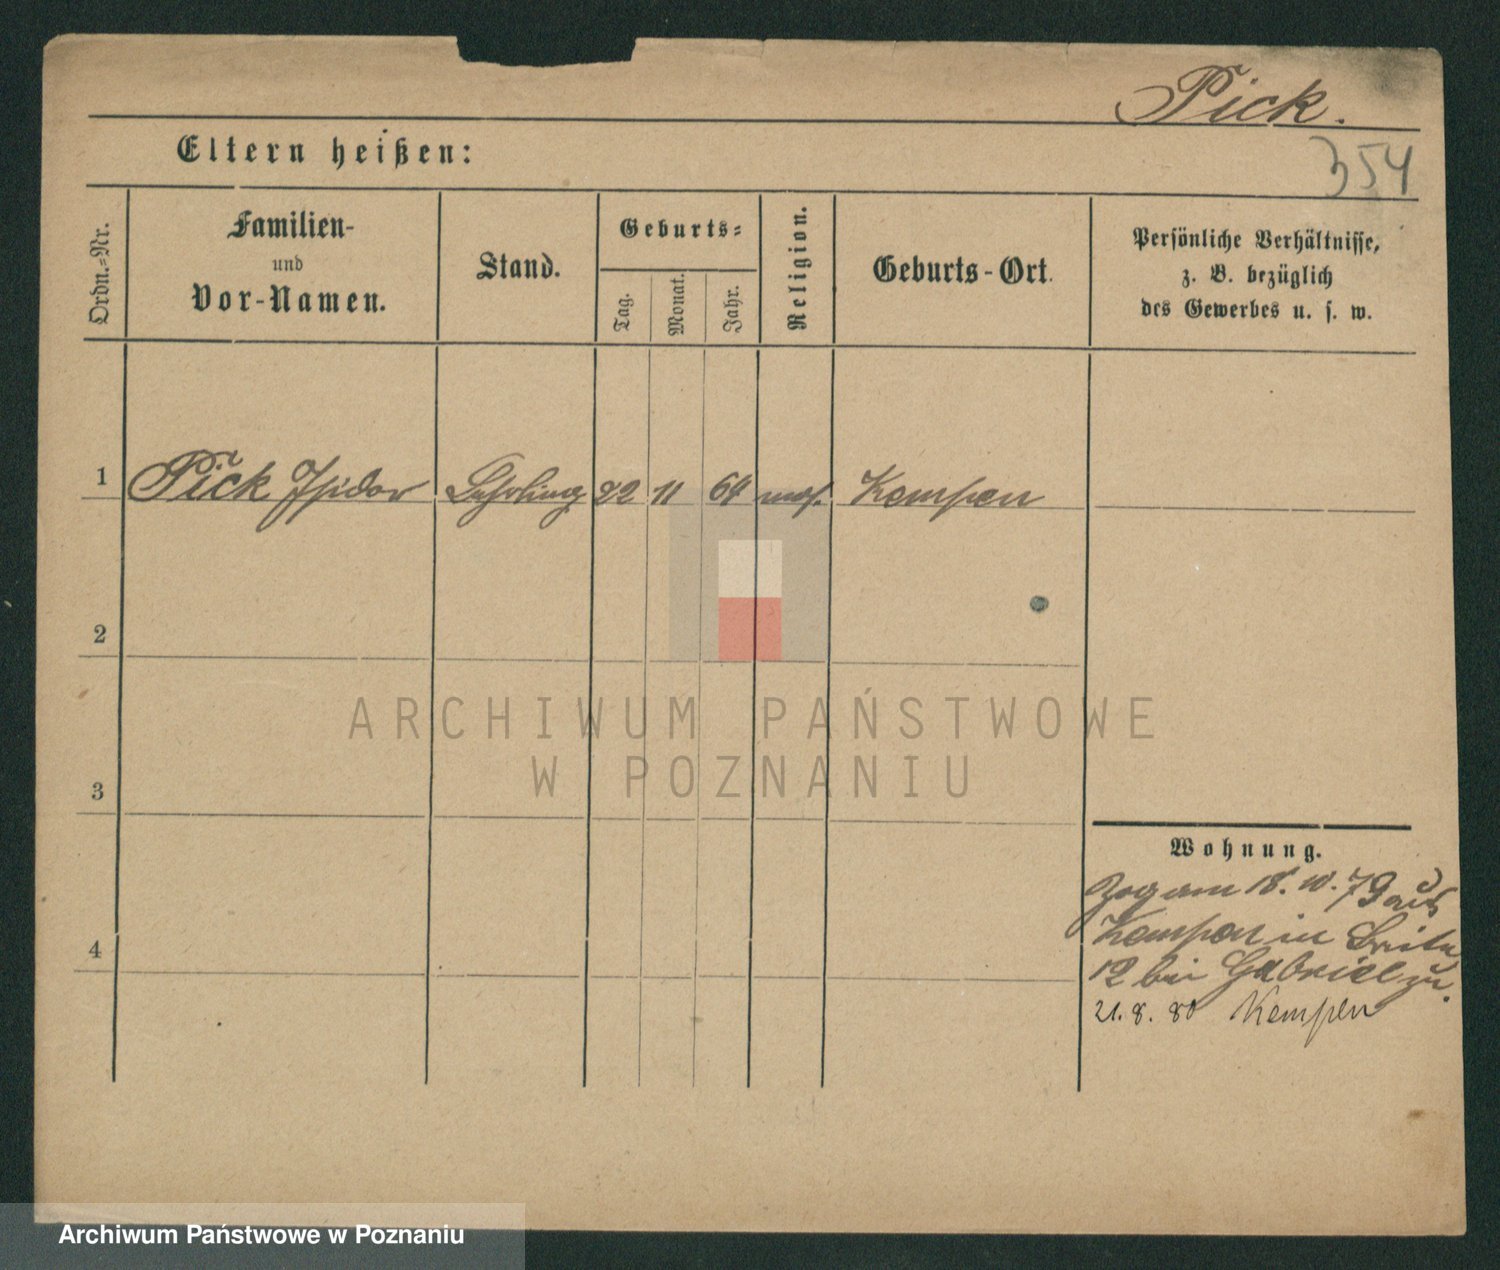 Pick.
354
Eltern heißen:
Ordn.-Nr.
Familien-
und
Vor-Namen.
Stand.
Geburts-
Tag.
Monat.
Jahr.
Religion.
Geburts-Ort.
Persönliche Verhältnisse,
z. B. bezüglich
des Gewerbes u. s. w.
1 Pick Isidor Lehrling 22 11 64 mos. Kempen
2
3
4
Wohnung.
Zog am 18. 10. 79 aus
Kempen in Breite
12 bei Gabriel zu.
21. 8. 80 Kempen
ARCHIWUM PAŃSTWOWE
W POZNANIU
Archiwum Państwowe w Poznaniu